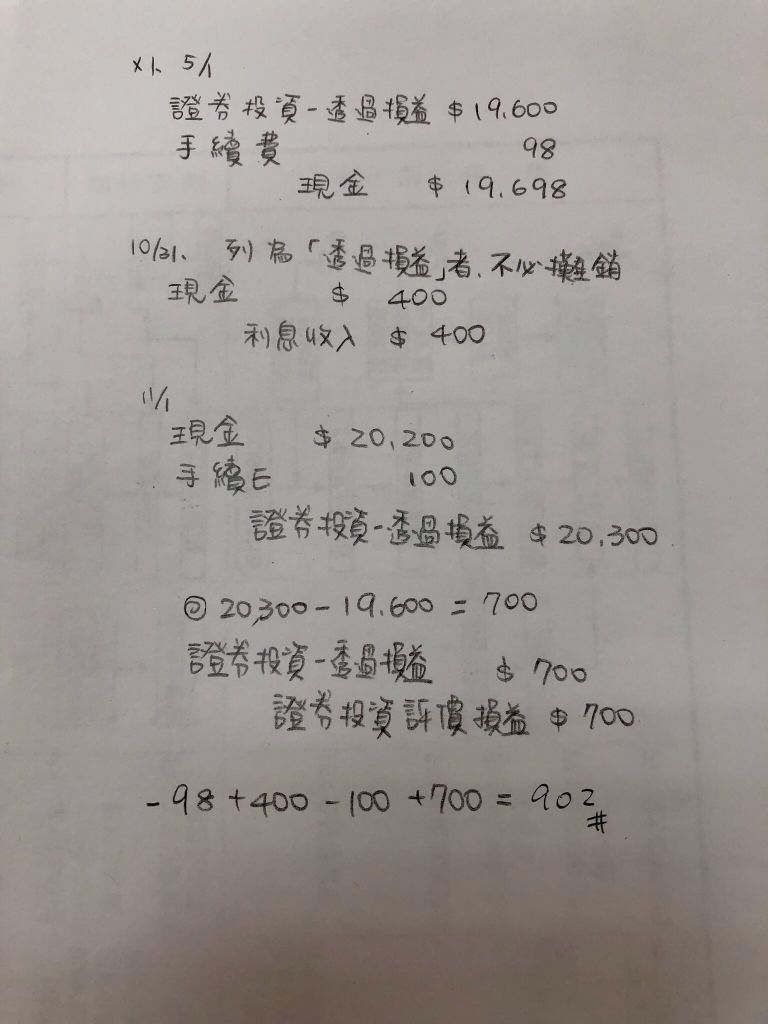 X1、5/1
證券投資-透過損益 $19,600
手續費 98
現金 $19,698
10/31、列為「透過損益」者、不必攤銷
現金 $ 400
利息收入 $ 400
11/1
現金 $20,200
手續 100
證券投資-透過損益 $20,300
@ 20,300-19,600=700
證券投資-透過損益 $700
證券投資評價損益 $700
-98+400-100+700=902#